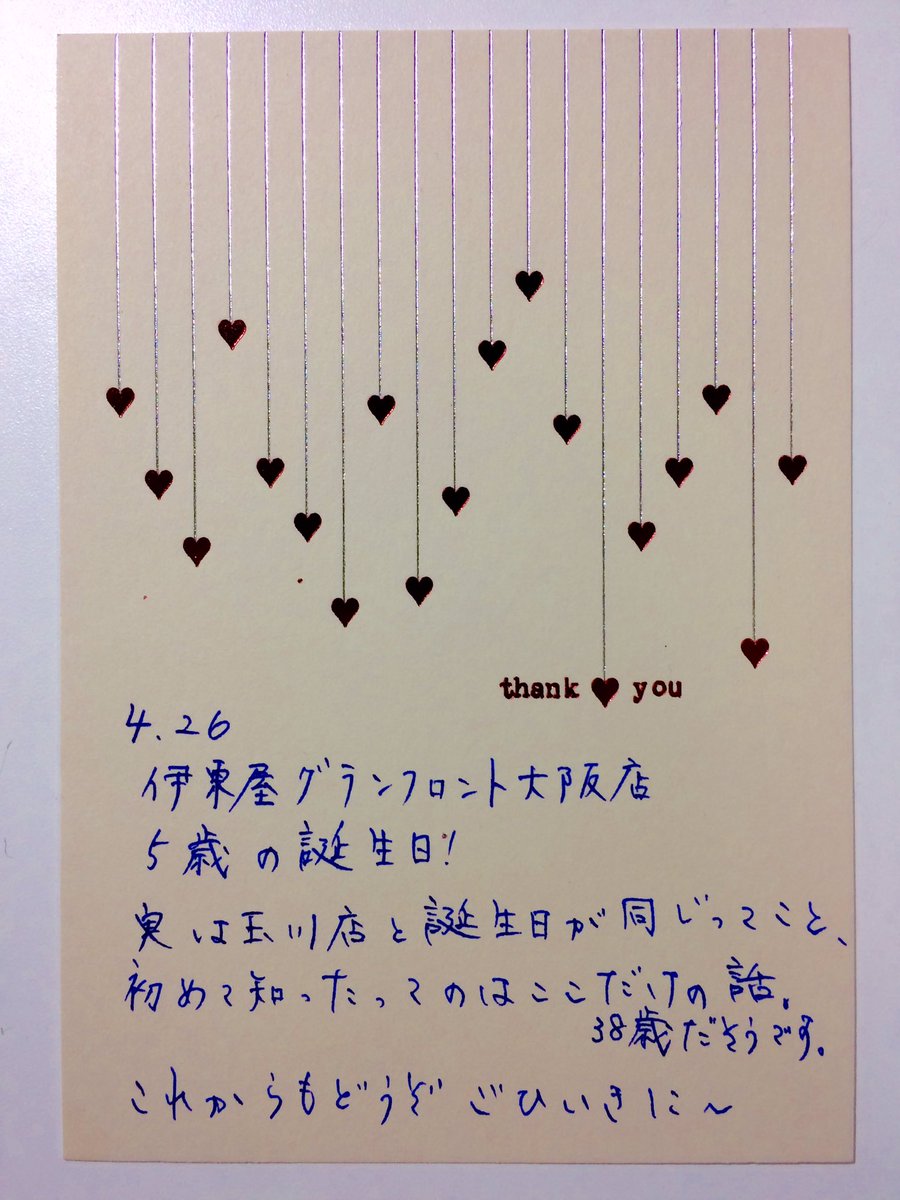 thank you
4.26
伊東屋グランフロント大阪店
5歳の誕生日!
実は玉川店と誕生日が同じってこと、
初めて知ったってのはここだけの話。
38歳だそうです。
これからもどうぞ ごひいきに〜